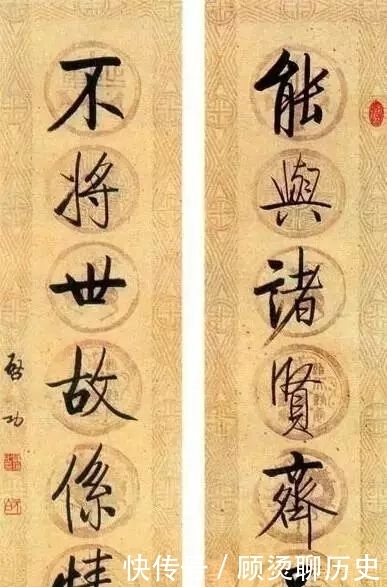 能與諸賢齊
不将世故係情
启功
快传号 / 顾烫聊历史